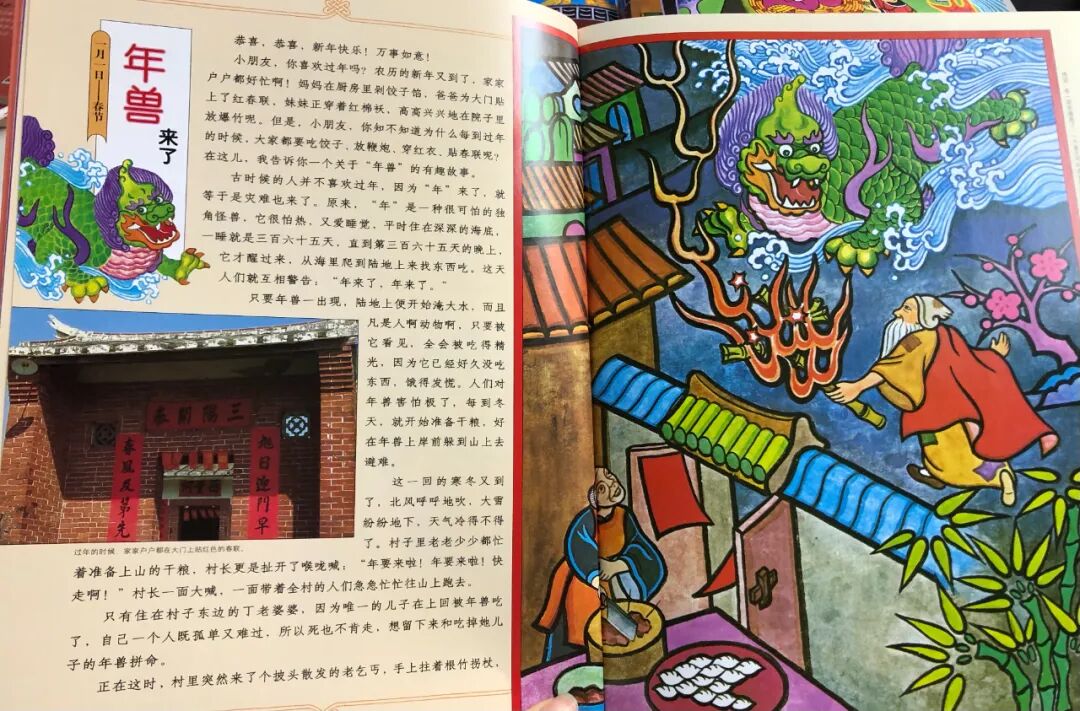 一月一日——春节
年兽
来了
恭喜，恭喜，新年快乐！万事如意！
小朋友，你喜欢过年吗？农历的新年又到了，家家
户户都好忙啊！妈妈在厨房里剁饺子馅，爸爸为大门贴
上了红春联，妹妹正穿着红棉袄，高高兴兴地在院子里
放爆竹呢。但是，小朋友，你知不知道为什么每到过年
的时候，大家都要吃饺子、放鞭炮、穿红衣、贴春联呢？
在这儿，我告诉你一个关于“年兽”的有趣故事。
古时候的人并不喜欢过年，因为“年”来了，就
等于是灾难也来了。原来，“年”是一种很可怕的独
角怪兽，它很怕热，又爱睡觉，平时住在深深的海底，
一睡就是三百六十五天，直到第三百六十五天的晚上，
它才醒过来，从海里爬到陆地上来找东西吃。这天
人们就互相警告：“年来了，年来了。”
只要年兽一出现，陆地上便开始淹大水，而且
凡是人啊动物啊，只要被
它看见，全会被吃得精
光，因为它已经好久没吃
东西，饿得发慌。人们对
年兽害怕极了，每到冬
天，就开始准备干粮，好
在年兽上岸前躲到山上去
避难。
这一回的寒冬又到
了，北风呼呼地吹，大雪
纷纷地下，天气冷得不得
了。村子里老老少少都忙
着准备上山的干粮，村长更是扯开了喉咙喊：“年要来啦！年要来啦！快
走啊！”村长一面大喊，一面带着全村的人们急急忙忙往山上跑去。
只有住在村子东边的丁老婆婆，因为唯一的儿子在上回被年兽吃
了，自己一个人既孤单又难过，所以死也不肯走，想留下来和吃掉她儿
子的年兽拼命。
正在这时，村里突然来了个披头散发的老乞丐，手上拄着根竹拐杖，
三陽開泰
旭日迎門早
春風及第先
过年的时候，家家户户都在大门上贴红色的春联。